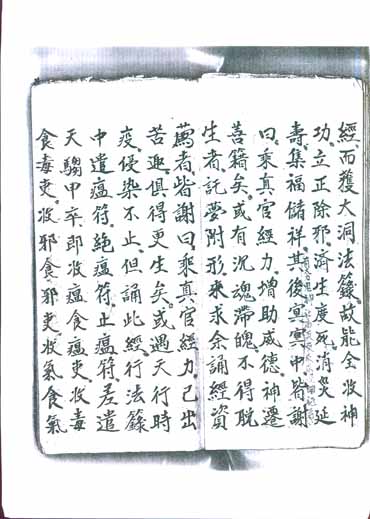 經而獲大洞法籙故能全收神
功立正除邪濟生度死消災延
壽集福儲祥其後冥冥中皆謝
曰乘真官經力增助威德神遷
善籍矣或有沉魂滯魄不得脫
生者託夢附形來求余誦經資
薦者皆謝曰乘真官經力已出
苦趣俱得更生矣或遇天行時
疫侵染不止但誦此經行法籙
中遣瘟符絕瘟符止瘟符差遣
天騶甲卒即收瘟食瘟吏收毒
食毒吏收邪食邪吏收氣食氣